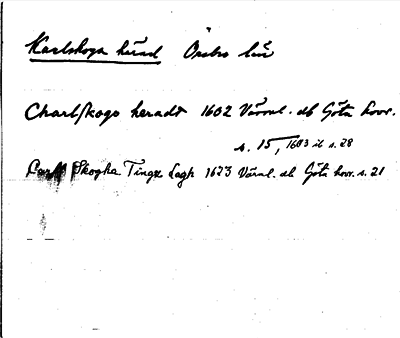 Karlskoga härad Örebro län
Charlskogo heradt 1602 Värml. db Göta hovr.
s. 15, 1603 il s. 28
Skogha Tingx Lagh 1623 Värml. db Göta hovr. s. 21